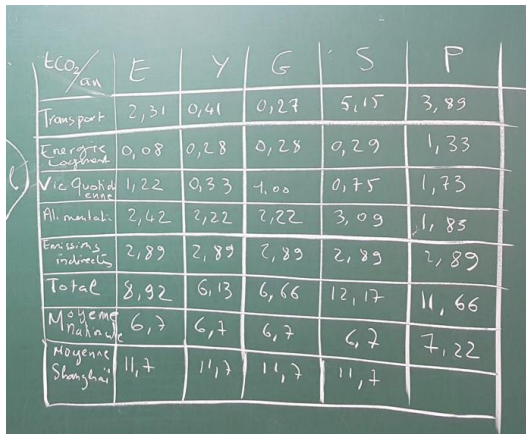 tCO₂/an E Y G S P
Transport 2,31 0,41 0,27 5,15 3,89
Energie Logement 0,08 0,28 0,28 0,29 1,33
Vie Quotidienne 1,22 0,33 1,00 0,75 1,73
Alimentati 2,42 2,22 2,22 3,09 1,83
Emissions indirectes 2,89 2,89 2,89 2,89 2,89
Total 8,92 6,13 6,66 12,17 11,66
Moyenne Nationale 6,7 6,7 6,7 6,7 7,22
Moyenne Shanghaï 11,7 11,7 11,7 11,7